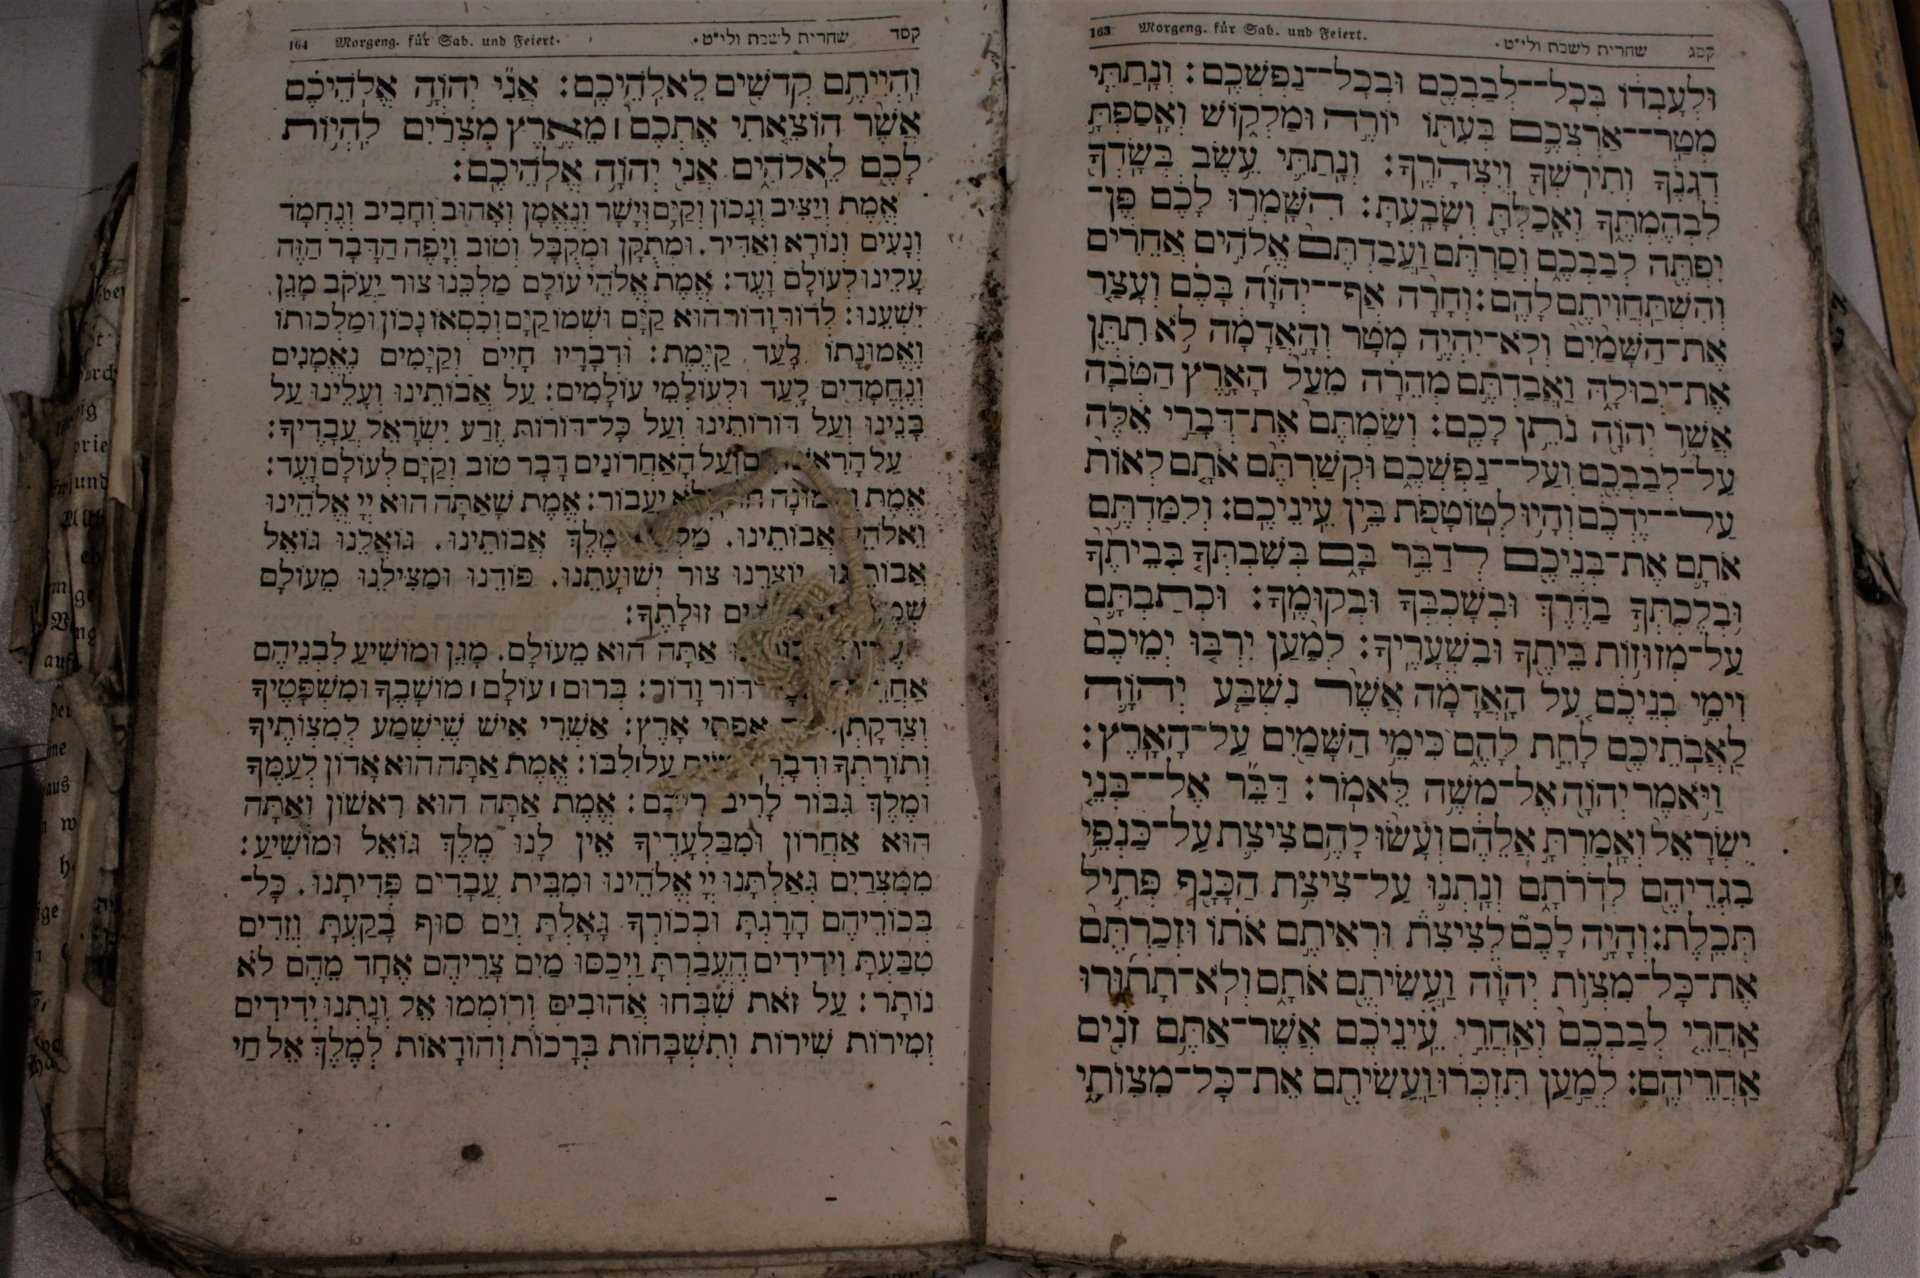 קסג שחרית לשבת ולי״ט. Morgeng. für Sab. und Feiert. 163
וּלְעָבְדוֹ בְּכָל־־לְבַבְכֶם וּבְכָל־־נַפְשְׁכֶם: וְנָתַתִּי
מְטַר־־אַרְצְכֶם בְּעִתּוֹ יוֹרֶה וּמַלְקוֹשׁ וְאָסַפְתָּ
דְגָנֶךָ וְתִירֹשְׁךָ וְיִצְהָרֶךָ: וְנָתַתִּי עֵשֶׂב בְּשָׂדְךָ
לִבְהֶמְתֶּךָ וְאָכַלְתָּ וְשָׂבָעְתָּ: הִשָּׁמְרוּ לָכֶם פֶּן־
יִפְתֶּה לְבַבְכֶם וְסַרְתֶּם וַעֲבַדְתֶּם אֱלֹהִים אֲחֵרִים
וְהִשְׁתַּחֲוִיתֶם לָהֶם: וְחָרָה אַף־־יְהוָֹה בָּכֶם וְעָצַר
אֶת־הַשָּׁמַיִם וְלֹא־יִהְיֶה מָטָר וְהָאֲדָמָה לֹא תִתֵּן
אֶת־יְבוּלָהּ וַאֲבַדְתֶּם מְהֵרָה מֵעַל הָאָרֶץ הַטֹּבָה
אֲשֶׁר יְהוָֹה נֹתֵן לָכֶם: וְשַׂמְתֶּם אֶת־דְּבָרַי אֵלֶּה
עַל־לְבַבְכֶם וְעַל־־נַפְשְׁכֶם וּקְשַׁרְתֶּם אֹתָם לְאוֹת
עַל־־יֶדְכֶם וְהָיוּ לְטוֹטָפֹת בֵּין עֵינֵיכֶם: וְלִמַּדְתֶּם
אֹתָם אֶת־בְּנֵיכֶם לְדַבֵּר בָּם בְּשִׁבְתְּךָ בְּבֵיתֶךָ
וּבְלֶכְתְּךָ בַדֶּרֶךְ וּבְשָׁכְבְּךָ וּבְקוּמֶךָ: וּכְתַבְתָּם
עַל־מְזוּזוֹת בֵּיתֶךָ וּבִשְׁעָרֶיךָ: לְמַעַן יִרְבּוּ יְמֵיכֶם
וִימֵי בְנֵיכֶם עַל הָאֲדָמָה אֲשֶׁר נִשְׁבַּע יְהוָֹה
לַאֲבֹתֵיכֶם לָתֵת לָהֶם כִּימֵי הַשָּׁמַיִם עַל־הָאָרֶץ:
וַיֹּאמֶר יְהוָֹה אֶל־מֹשֶׁה לֵּאמֹר: דַּבֵּר אֶל־־בְּנֵי
יִשְׂרָאֵל וְאָמַרְתָּ אֲלֵהֶם וְעָשׂוּ לָהֶם צִיצִת עַל־כַּנְפֵי
בִגְדֵיהֶם לְדֹרֹתָם וְנָתְנוּ עַל־צִיצִת הַכָּנָף פְּתִיל
תְּכֵלֶת: וְהָיָה לָכֶם לְצִיצִת וּרְאִיתֶם אֹתוֹ וּזְכַרְתֶּם
אֶת־כָּל־מִצְוֹת יְהוָֹה וַעֲשִׂיתֶם אֹתָם וְלֹא־תָתוּרוּ
אַחֲרֵי לְבַבְכֶם וְאַחֲרֵי עֵינֵיכֶם אֲשֶׁר־אַתֶּם זֹנִים
אַחֲרֵיהֶם: לְמַעַן תִּזְכְּרוּ וַעֲשִׂיתֶם אֶת־כָּל־מִצְוֹתָי
קסד שחרית לשבת ולי״ט. Morgeng. für Sab. und Feiert. 164
וִהְיִיתֶם קְדֹשִׁים לֵאלֹהֵיכֶם: אֲנִי יְהוָֹה אֱלֹהֵיכֶם
אֲשֶׁר הוֹצֵאתִי אֶתְכֶם ׀ מֵאֶרֶץ מִצְרַיִם לִהְיוֹת
לָכֶם לֵאלֹהִים אֲנִי יְהוָֹה אֱלֹהֵיכֶם:
אֱמֶת וְיַצִּיב וְנָכוֹן וְקַיָּם וְיָשָׁר וְנֶאֱמָן וְאָהוּב וְחָבִיב וְנֶחְמָד
וְנָעִים וְנוֹרָא וְאַדִּיר. וּמְתֻקָּן וּמְקֻבָּל וְטוֹב וְיָפֶה הַדָּבָר הַזֶּה
עָלֵינוּ לְעוֹלָם וָעֶד: אֱמֶת אֱלֹהֵי עוֹלָם מַלְכֵּנוּ צוּר יַעֲקֹב מָגֵן
יִשְׁעֵנוּ: לְדוֹר וָדוֹר הוּא קַיָּם וּשְׁמוֹ קַיָּם וְכִסְאוֹ נָכוֹן וּמַלְכוּתוֹ
וֶאֱמוּנָתוֹ לָעַד קַיֶּמֶת: וּדְבָרָיו חָיִים וְקַיָּמִים נֶאֱמָנִים
וְנֶחֱמָדִים לָעַד וּלְעוֹלְמֵי עוֹלָמִים: עַל אֲבוֹתֵינוּ וְעָלֵינוּ עַל
בָּנֵינוּ וְעַל דּוֹרוֹתֵינוּ וְעַל כָּל־דּוֹרוֹת זֶרַע יִשְׂרָאֵל עֲבָדֶיךָ:
וְעַל הָאַחֲרוֹנִים דָּבָר טוֹב וְקַיָּם לְעוֹלָם וָעֶד:
אֱמֶת יַעֲבוֹר: אֱמֶת שָׁאַתָּה הוּא יְיָ אֱלֹהֵינוּ
אֲבוֹתֵינוּ. מֶלֶךְ אֲבוֹתֵינוּ. גּוֹאֲלֵנוּ גּוֹאֵל
יוֹצְרֵנוּ צוּר יְשׁוּעָתֵנוּ. פּוֹדֵנוּ וּמַצִּילֵנוּ מֵעוֹלָם
זוּלָתֶךָ:
אַתָּה הוּא מֵעוֹלָם. מָגֵן וּמוֹשִׁיעַ לִבְנֵיהֶם
דּוֹר וָדוֹר: בְּרוּם ׀ עוֹלָם ׀ מוֹשָׁבֶךָ וּמִשְׁפָּטֶיךָ
אַפְסֵי אָרֶץ: אַשְׁרֵי אִישׁ שֶׁיִּשְׁמַע לְמִצְוֹתֶיךָ
וְתוֹרָתְךָ עַל לִבּוֹ: אֱמֶת אַתָּה הוּא אָדוֹן לְעַמֶּךָ
וּמֶלֶךְ גִּבּוֹר לָרִיב רִיבָם: אֱמֶת אַתָּה הוּא רִאשׁוֹן וְאַתָּה
הוּא אַחֲרוֹן וּמִבַּלְעָדֶיךָ אֵין לָנוּ מֶלֶךְ גּוֹאֵל וּמוֹשִׁיעַ:
מִמִּצְרַיִם גְּאַלְתָּנוּ יְיָ אֱלֹהֵינוּ וּמִבֵּית עֲבָדִים פְּדִיתָנוּ. כָּל־
בְּכוֹרֵיהֶם הָרָגְתָּ וּבְכוֹרְךָ גָּאָלְתָּ וְיַם סוּף בָּקַעְתָּ וְזֵדִים
טִבַּעְתָּ וִידִידִים הֶעֱבַרְתָּ וַיְכַסּוּ מַיִם צָרֵיהֶם אֶחָד מֵהֶם לֹא
נוֹתָר: עַל זֹאת שִׁבְּחוּ אֲהוּבִים וְרוֹמְמוּ אֵל וְנָתְנוּ יְדִידִים
זְמִירוֹת שִׁירוֹת וְתִשְׁבָּחוֹת בְּרָכוֹת וְהוֹדָאוֹת לְמֶלֶךְ אֵל חַי